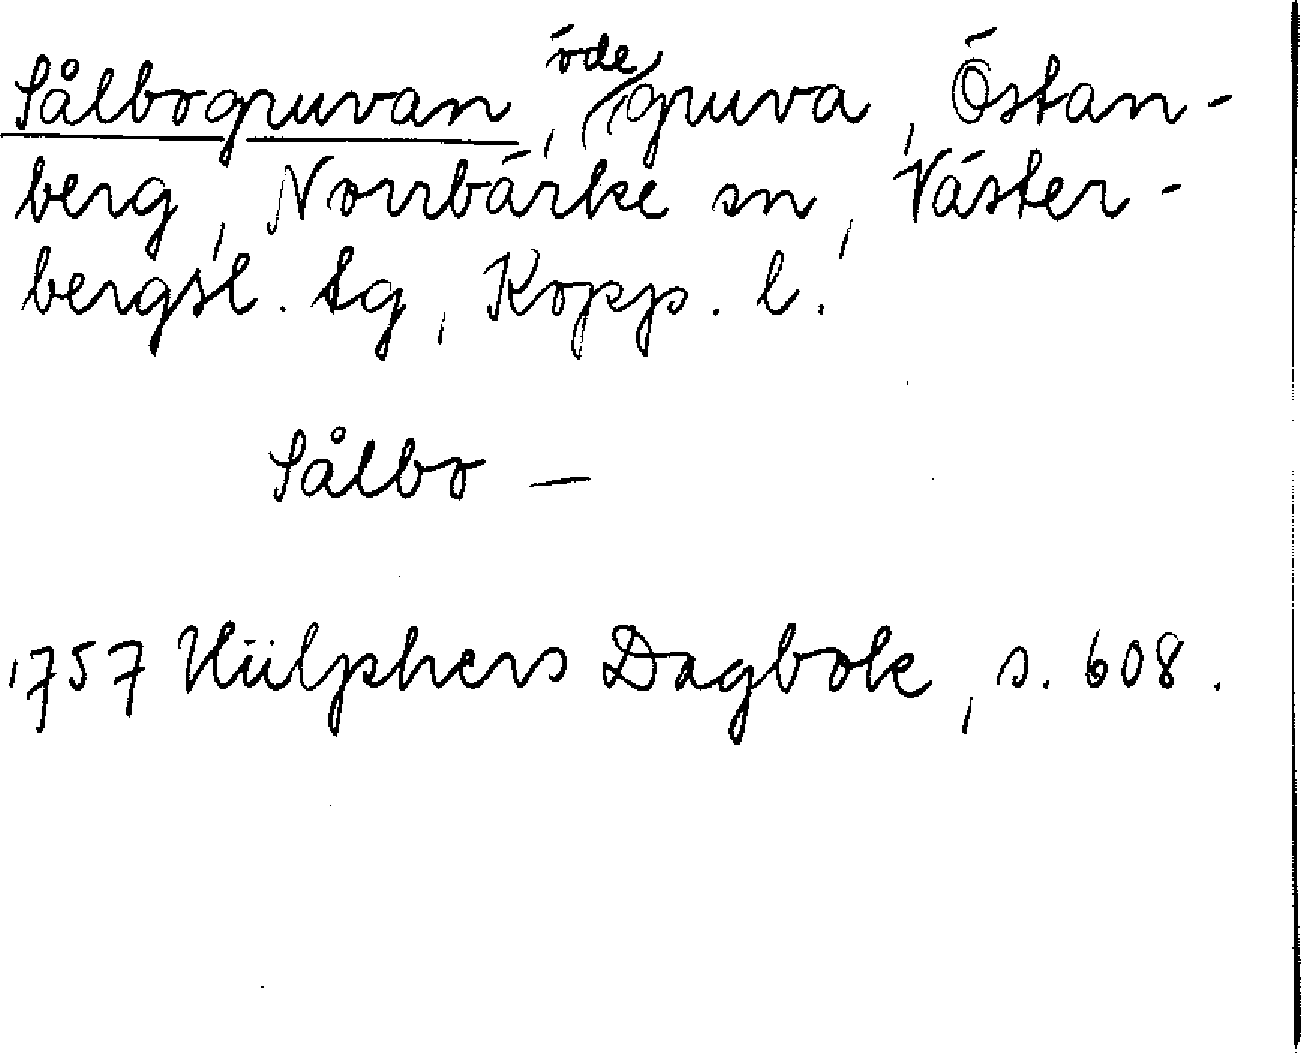 Sålbogruvan, öde gruva, Östan-
berg, Norrbärke sn, Väster-
bergsl. tg, Kopp. l.
Sålbo —
1757 Hülphers Dagbok, s. 608.